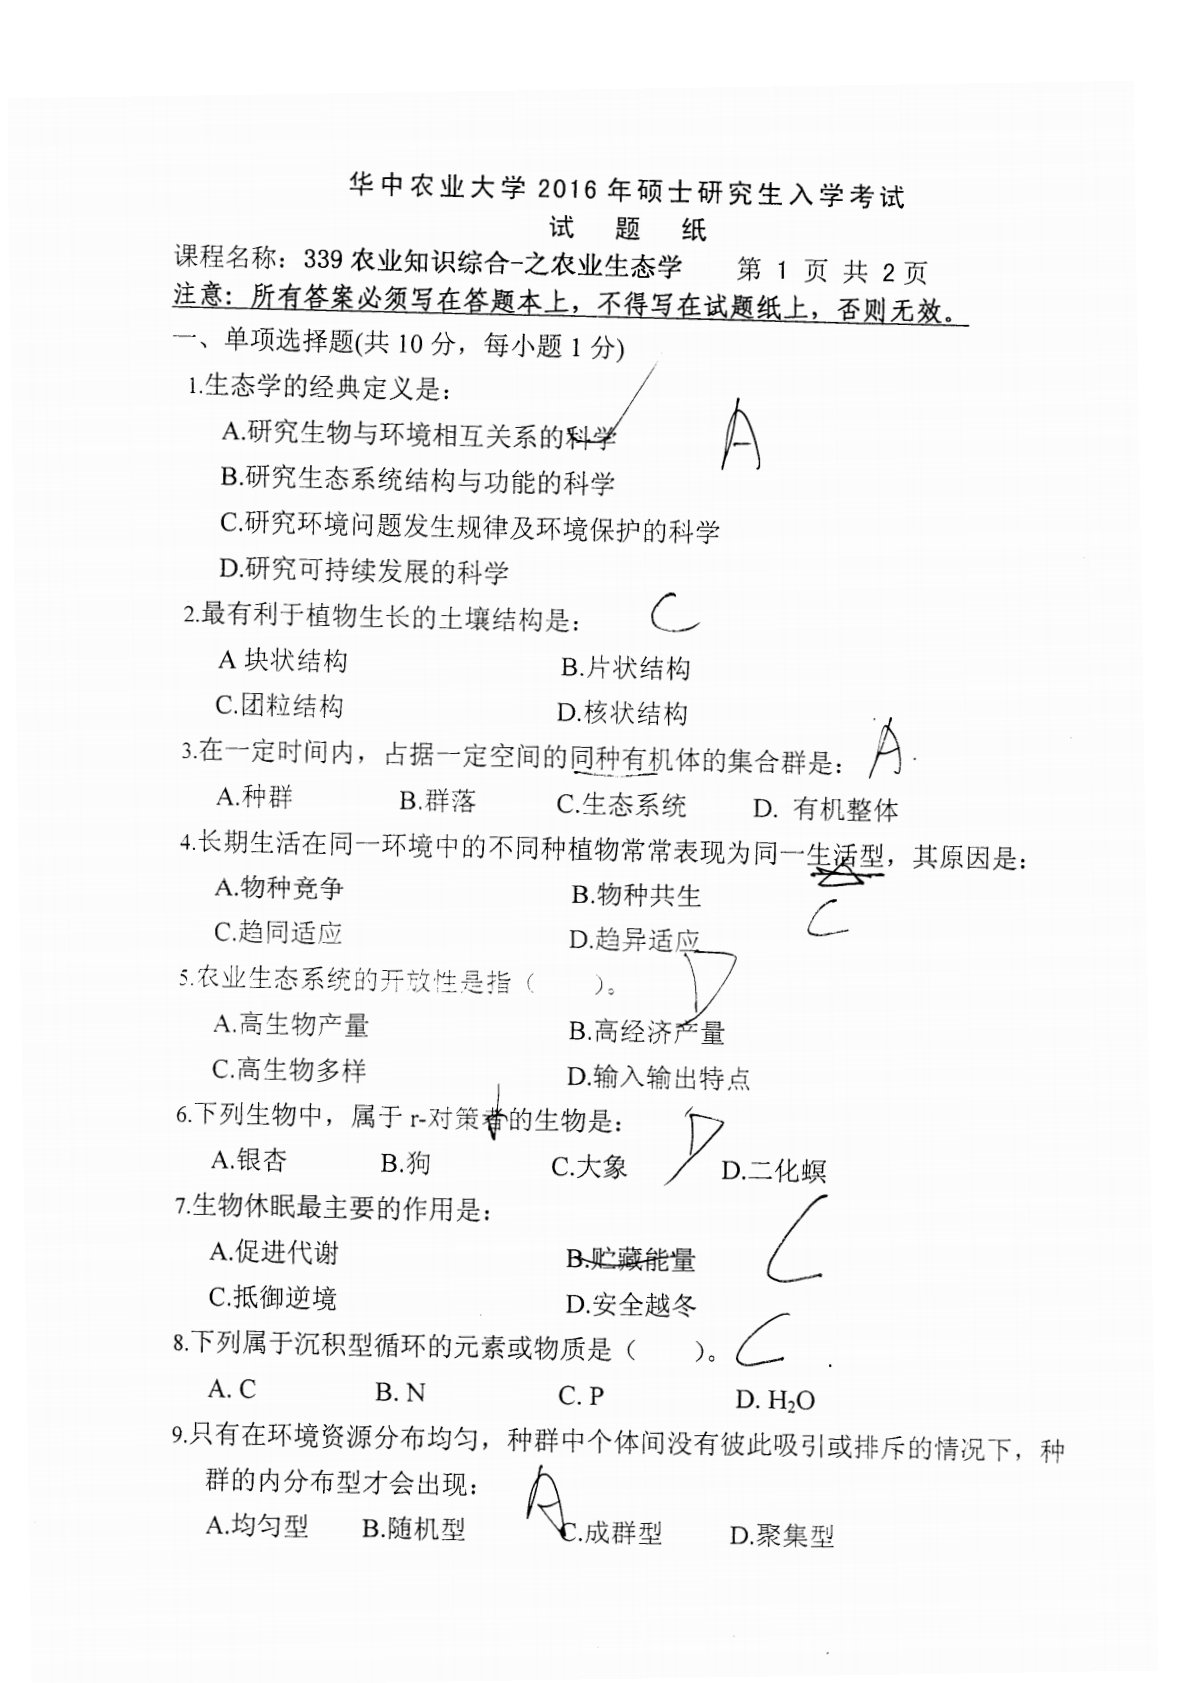 华中农业大学 2016 年硕士研究生入学考试
试 题 纸
课程名称：339 农业知识综合-之农业生态学 第 1 页 共 2 页
注意：所有答案必须写在答题本上，不得写在试题纸上，否则无效。
一、单项选择题(共 10 分，每小题 1 分)
1.生态学的经典定义是：
A.研究生物与环境相互关系的科学 A
B.研究生态系统结构与功能的科学
C.研究环境问题发生规律及环境保护的科学
D.研究可持续发展的科学
2.最有利于植物生长的土壤结构是： C
A 块状结构 B.片状结构
C.团粒结构 D.核状结构
3.在一定时间内，占据一定空间的同种有机体的集合群是： A
A.种群 B.群落 C.生态系统 D. 有机整体
4.长期生活在同一环境中的不同种植物常常表现为同一生活型，其原因是：
A.物种竞争 B.物种共生
C.趋同适应 D.趋异适应 C
5.农业生态系统的开放性是指（ ）。 D
A.高生物产量 B.高经济产量
C.高生物多样 D.输入输出特点
6.下列生物中，属于 r-对策者的生物是： D
A.银杏 B.狗 C.大象 D.二化螟
7.生物休眠最主要的作用是：
A.促进代谢 B.贮藏能量 C
C.抵御逆境 D.安全越冬
8.下列属于沉积型循环的元素或物质是（ ）。 C
A. C B. N C. P D. H₂O
9.只有在环境资源分布均匀，种群中个体间没有彼此吸引或排斥的情况下，种
群的内分布型才会出现： A
A.均匀型 B.随机型 C.成群型 D.聚集型